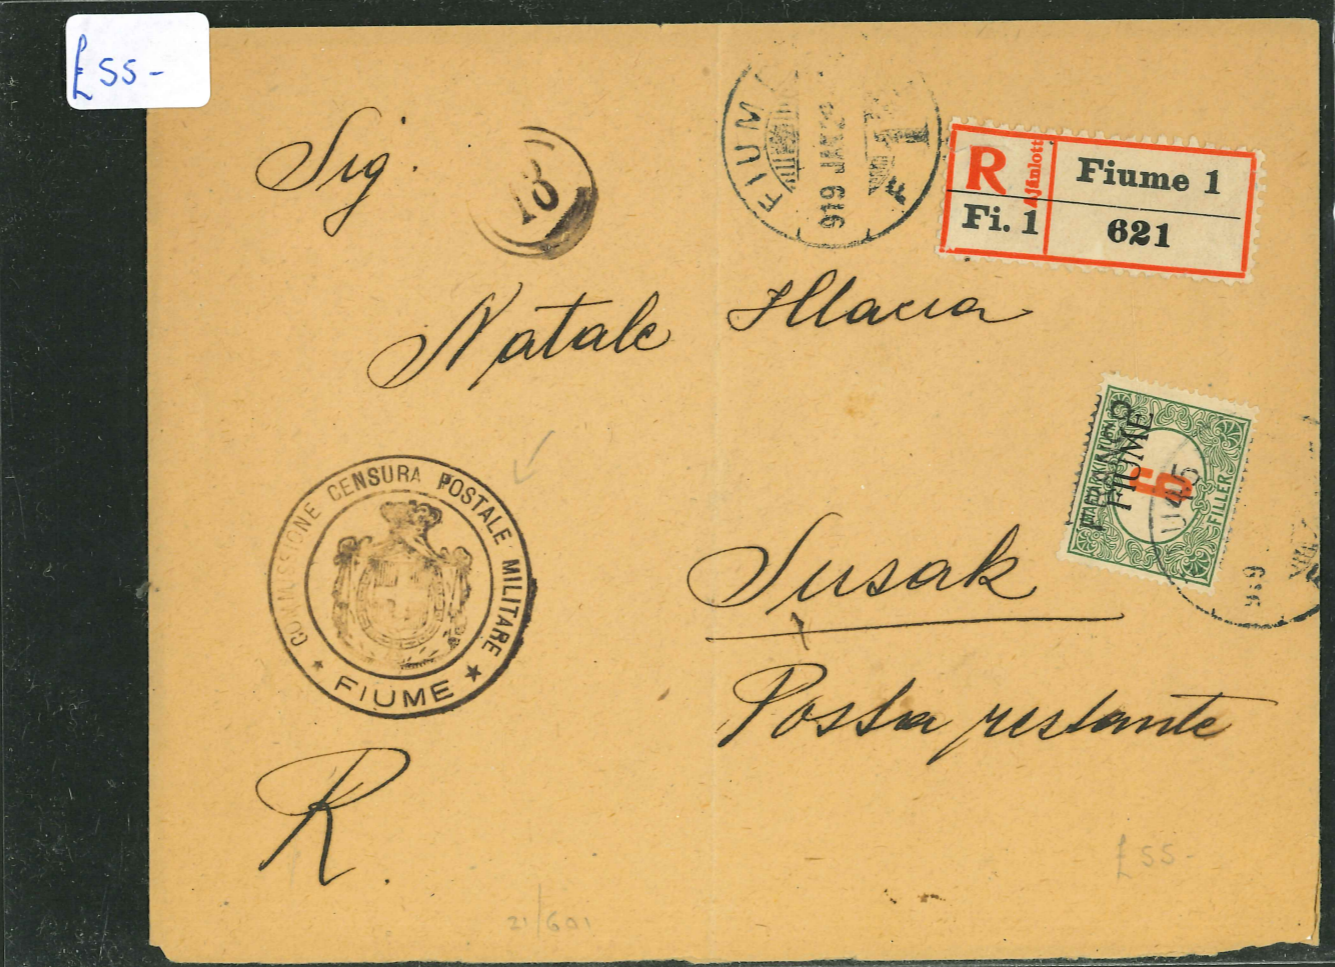 £55-
Sig.
18
FIUM
919 JAN.2
R
Ajánlott
Fiume 1
Fi. 1
621
Natale Illacia
FRANCO
FIUME
45
6
FILLER
919
COMMISSIONE CENSURA POSTALE MILITARE
★ FIUME ★
Susak
Posta restante
R.
£55-
21/601